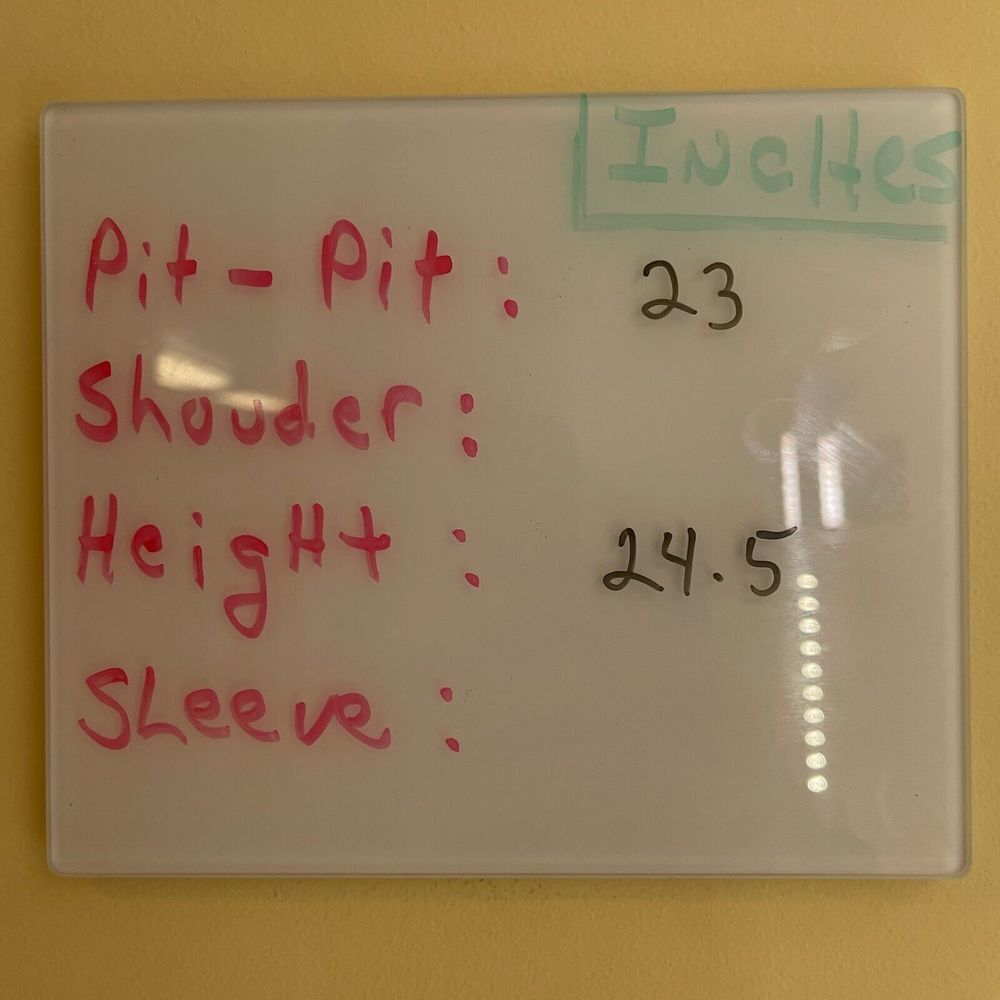 IncHes
Pit - Pit : 23
Shouder :
HeigHt : 24.5
SLeeve :